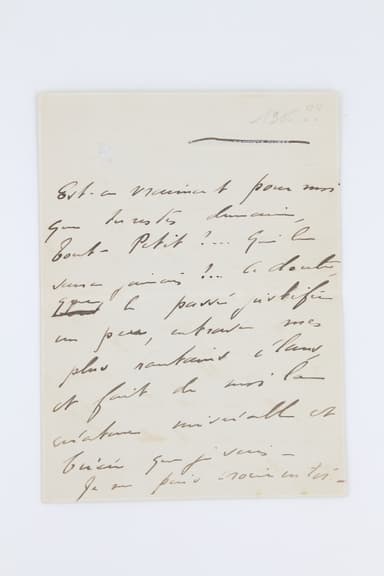 1905 ??
Est-ce vraiment pour moi
que tu restes demain,
Tout-Petit ?... Qui le
saura jamais !... Ce doute,
que le passé justifie
un peu, entrave mes
plus spontanés élans
et fait de moi la
créature misérable et
brisée que je suis –
Je ne puis